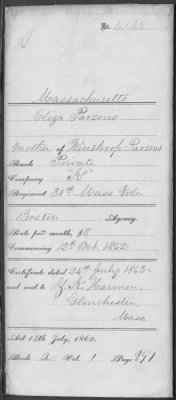 No. 4138
Massachusetts
Eliza Parsons
mother of Winthrop Parsons
Rank Private
Company "K"
Regiment 30th Mass Vols
Boston Agency.
Rate per month, $8
Commencing 12th Oct. 1862
Certificate dated 24th July 1863
and sent to Y. K. Harmon,
Gloucester,
Mass.
Act 14th July, 1862.
Book A Vol. 1 Page 271